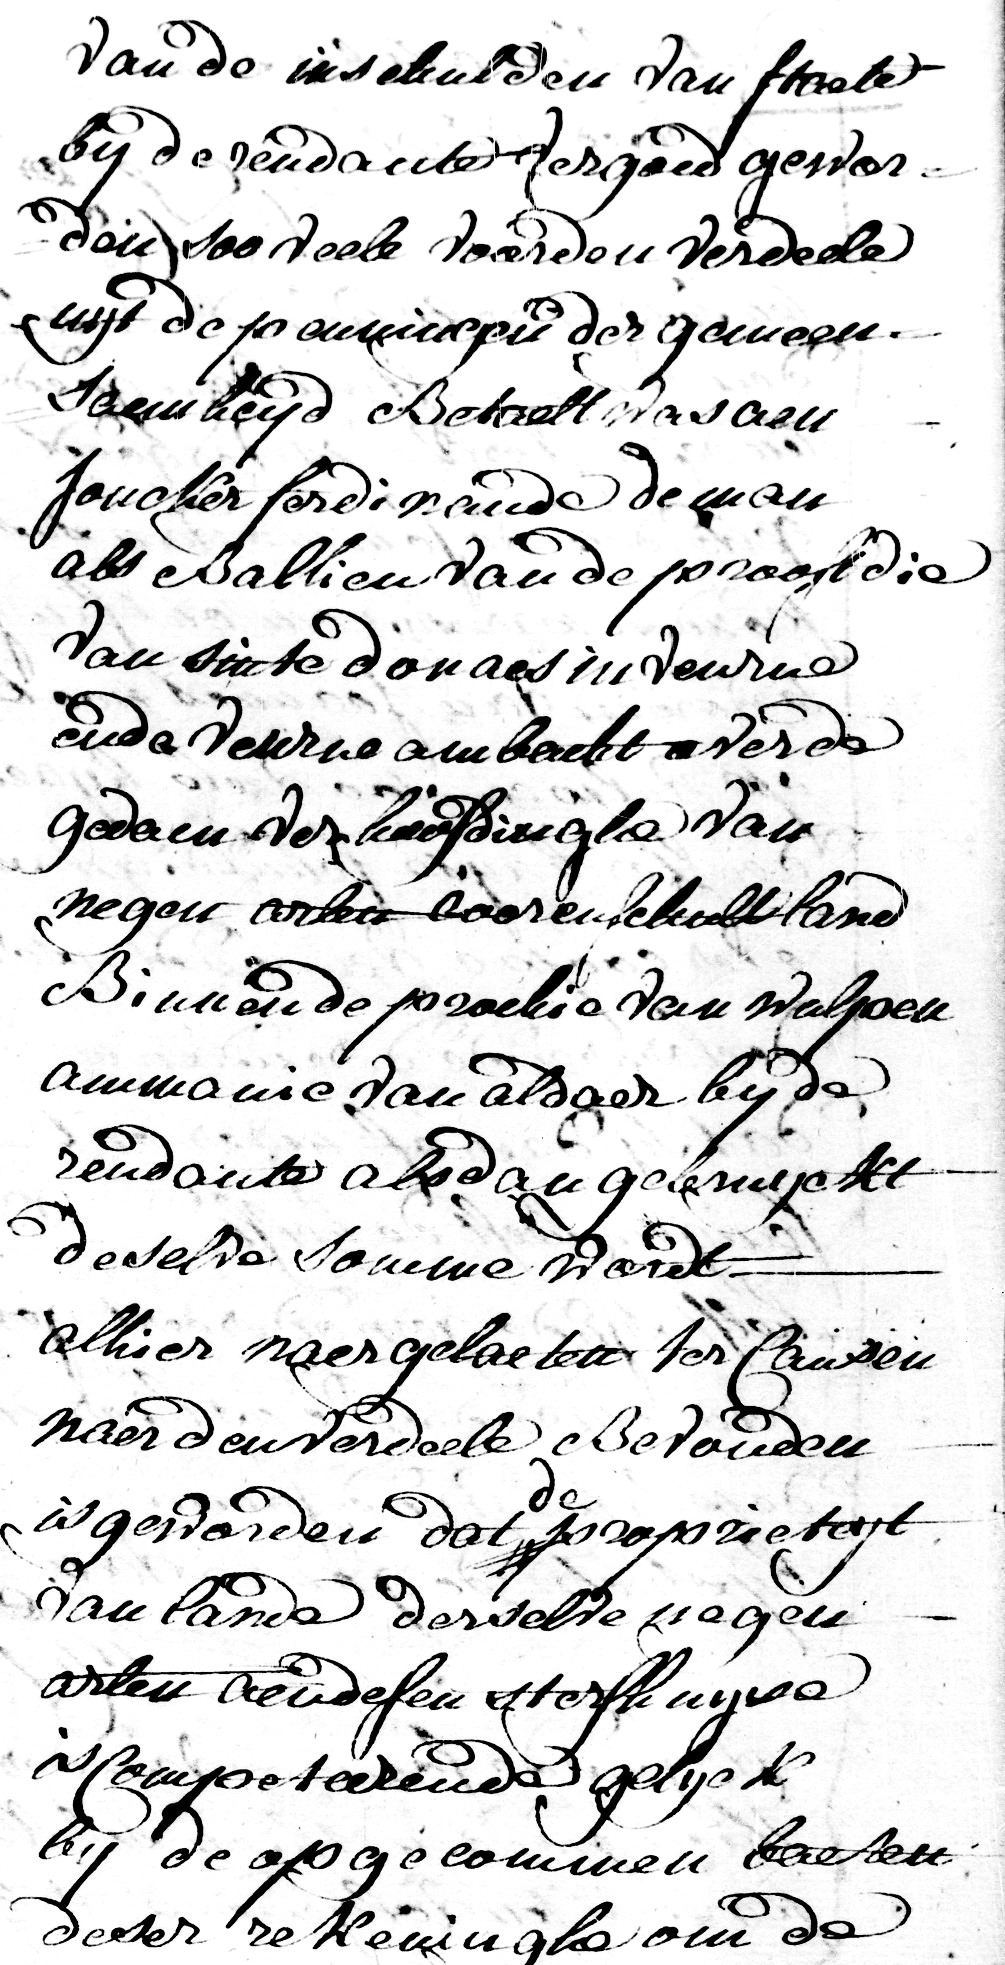 van de inschulden van staete
by de rendante vergoed gewor-
den) soo veele voor den verdeele
uyt de penningen der gemeen-
saemheyd Betaelt was aen
Joncker ferdinande de man
als Ballieu van de proostdie
van sinte donaes in veurne
ende veurne ambacht over de
gedaen ver heffinghe van
negen
Binnen de prochie van wulpen
ammanie van aldaer by de
rendante alsdan gebruyckt
deselve somme wordt
alhier naergelaeten ter causen
naer den verdeele Bevonden
is geworden dat de proprieteyt
van lande derselve negen
aen desen sterfhuyse
is Competeerende gelyck
by de opgecommen baeten
deser rekeninghe om de